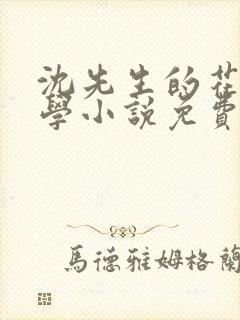 沈先生的花
學小說免費
馬德雅姆格蘭